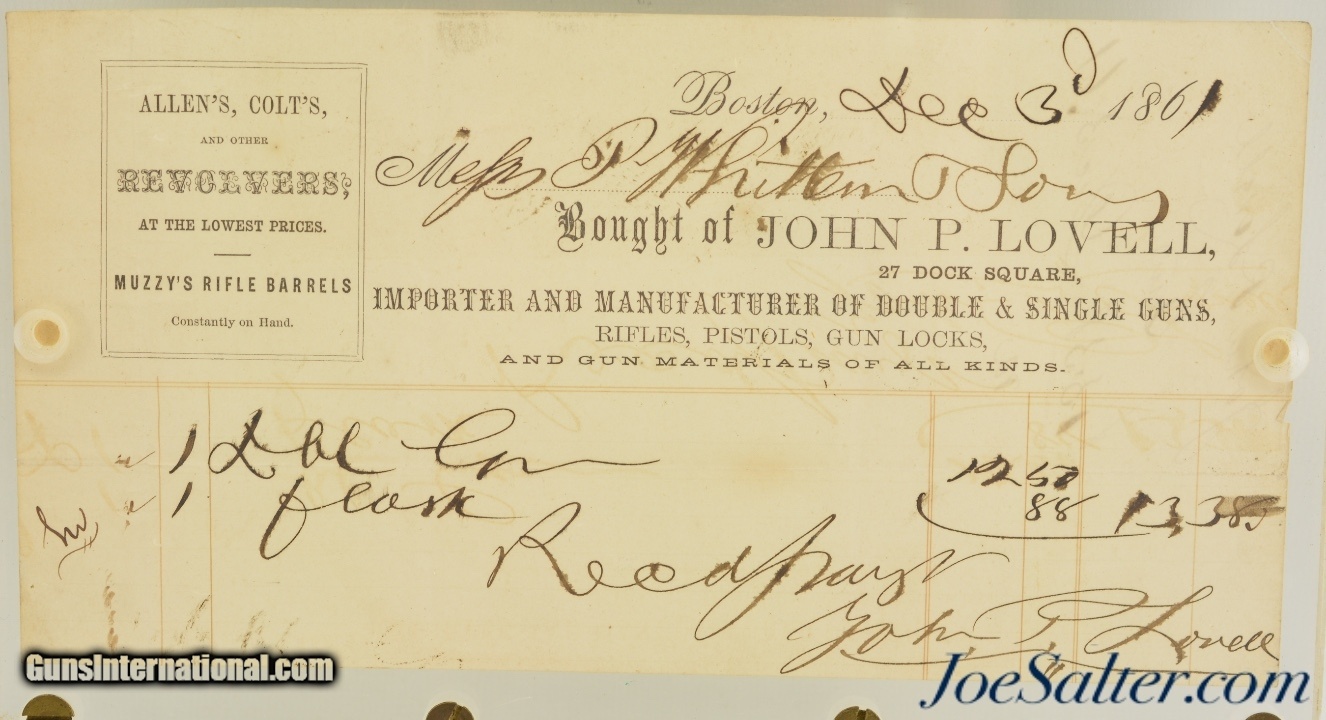 ALLEN'S, COLT'S,
AND OTHER
REVOLVERS,
AT THE LOWEST PRICES.
MUZZY'S RIFLE BARRELS
Constantly on Hand.
Boston, Dec 3d 1861
Mess P Whitten & Sons
Bought of JOHN P. LOVELL,
27 DOCK SQUARE,
IMPORTER AND MANUFACTURER OF DOUBLE & SINGLE GUNS,
RIFLES, PISTOLS, GUN LOCKS,
AND GUN MATERIALS OF ALL KINDS.
" 1 Dbl Gun 12 50
" 1 flask 88 13,38
Recd payt
John P. Lovell
GunsInternational.com
JoeSalter.com